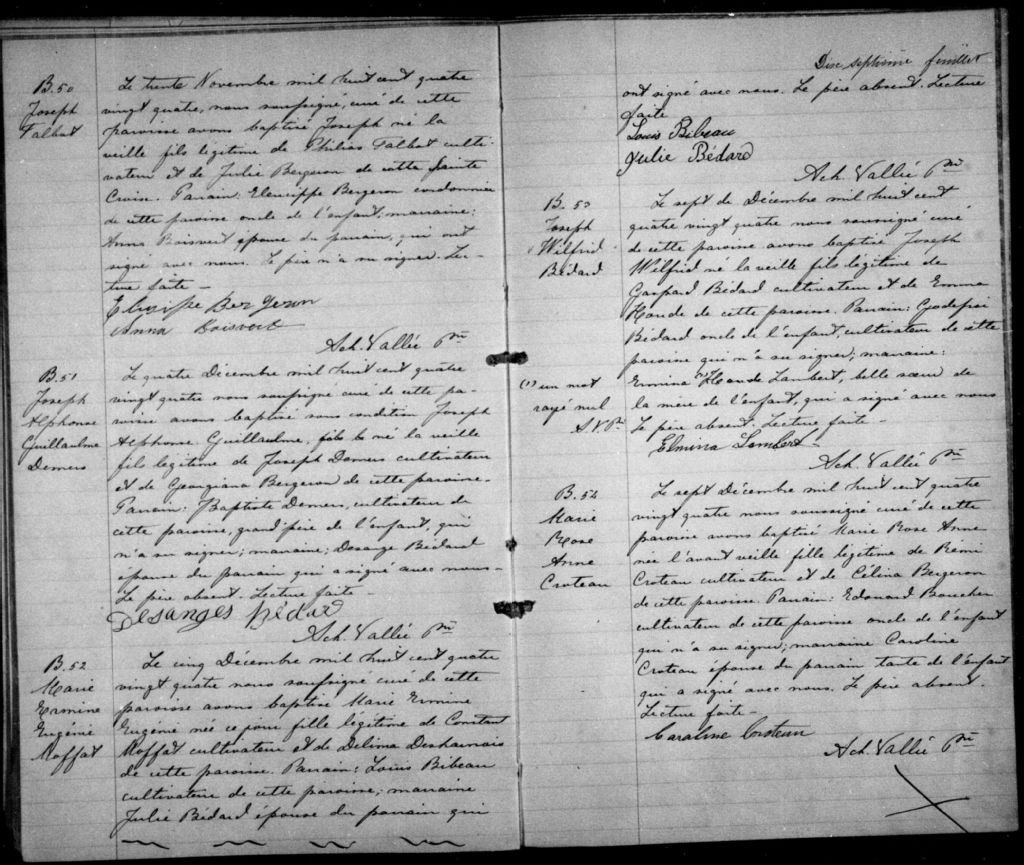 B. 50
Joseph
Talbot
Le trente Novembre mil huit cent quatre
vingt quatre, nous soussigné, curé de cette
paroisse avons baptisé Joseph né la
veille fils legitime de Philias Talbot culti-
vateur et de Julie Bergeron de cette Sainte
Croix. Parain: Eleusippe Bergeron cordonnier
de cette paroisse oncle de l'enfant, marraine:
Anna Boisvert épouse du parain, qui ont
signé avec nous. Le père n'a su signer. Lec-
ture faite -
Elusippe Bergeron
Anna Boisvert
Ach. Vallée Ptre
B. 51
Joseph
Alphonse
Guillaulme
Demers
Le quatre Décembre mil huit cent quatre
vingt quatre nous soussigné curé de cette pa-
roisse avons baptisé sous condition Joseph
Alphonse Guillaulme, fils né la veille
fils legitime de Joseph Demers cultivateur
et de Georgiana Bergeron de cette paroisse.
Parain: Baptiste Demers, cultivateur de
cette paroisse, grand'père de l'enfant, qui
n'a su signer; marraine: Desange Bédard
épouse du parain qui a signé avec nous-
Le père absent. Lecture faite -
Desanges Bédard
Ach. Vallée Ptre
B. 52
Marie
Ermine
Eugénie
Moffat
Le cinq Décembre mil huit cent quatre
vingt quatre nous soussigné curé de cette
paroisse avons baptisé Marie Ermine
Eugénie née ce jour fille légitime de Constant
Moffat cultivateur et de Delima Desharnais
de cette paroisse. Parain: Louis Bibeau
cultivateur de cette paroisse; marraine
Julie Bédard épouse du parrain qui
Dix septième feuillet
ont signé avec nous. Le père absent. Lecture
faite
Louis Bibeau
Julie Bédard
Ach. Vallée Ptre
B. 53
Joseph
Wilfrid
Bédard
Le sept de Décembre mil huit cent
quatre vingt quatre nous soussigné curé
de cette paroisse avons baptisé Joseph
Wilfrid né la veille fils légitime de
Gaspard Bédard cultivateur et de Emma
Houde de cette paroisse. Parain: Godefroi
Bédard oncle de l'enfant, cultivateur de cette
paroisse qui n'a su signer; marraine:
Ermina (1) Houde Lambert, belle sœur de
la mère de l'enfant, qui a signé avec nous
Le père absent. Lecture faite -
(1) un mot
rayé nul
A V. Ptre
Elmina Lambert -
Ach. Vallée Ptre
B. 54
Marie
Rose
Anne
Croteau
Le sept Décembre mil huit cent quatre
vingt quatre nous soussigné curé de cette
paroisse avons baptisé Marie Rose Anne
née l'avant veille fille légitime de Rémi
Croteau cultivateur et de Célina Bergeron
de cette paroisse. Parain: Edouard Boucher
cultivateur de cette paroisse oncle de l'enfant
qui n'a su signer; marraine Caroline
Croteau épouse du parrain tante de l'enfant
qui a signé avec nous. Le père absent.
Lecture faite -
Caroline Croteau
Ach Vallée Ptre